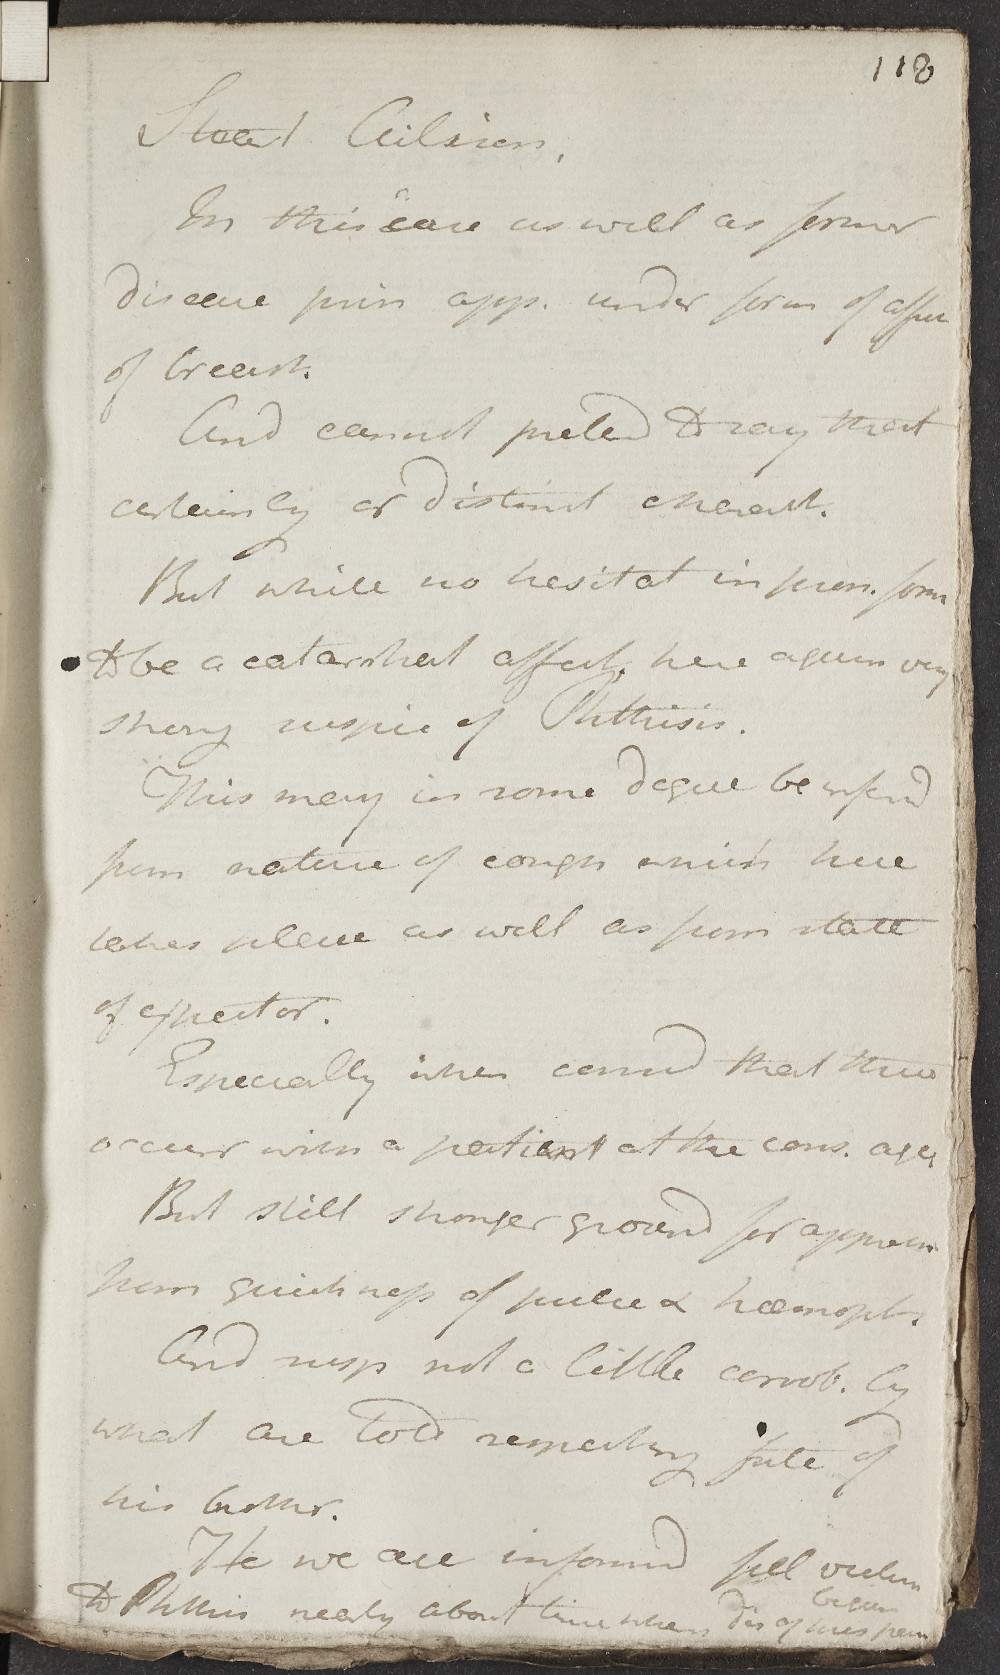 118
In this case as well as former
disease prin app. under form of affec
of breast.
And cannot pretend to say that
certainly or distinct charact.
But while no hesitat in pron. form
to be a catarrhal affect. here again very
strong suspic of Phthisis.
This may in some degree be infend
from nature of cough which here
takes place as well as from state
of expector.
Especially when consid that these
occur with a patient at the cons. age
But still stronger ground for appreh
from quickness of pulse & haemopt.
And susp not a little corrob. by
what are told respecting fate of
his brother.
He we are informd fell victim
to Phthis nearly about time when dis of this patient
began